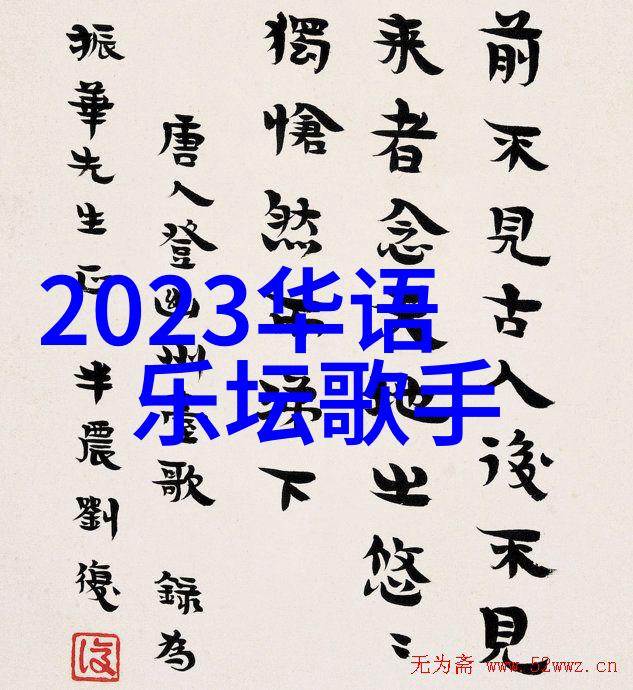 前不見古人後不見
来者念天地之悠〻
獨愴然而涕下
唐人登幽州臺歌 錄為
振華先生正 半農劉復
2023华语
乐坛歌手
无为斋 www.52wwz.cn